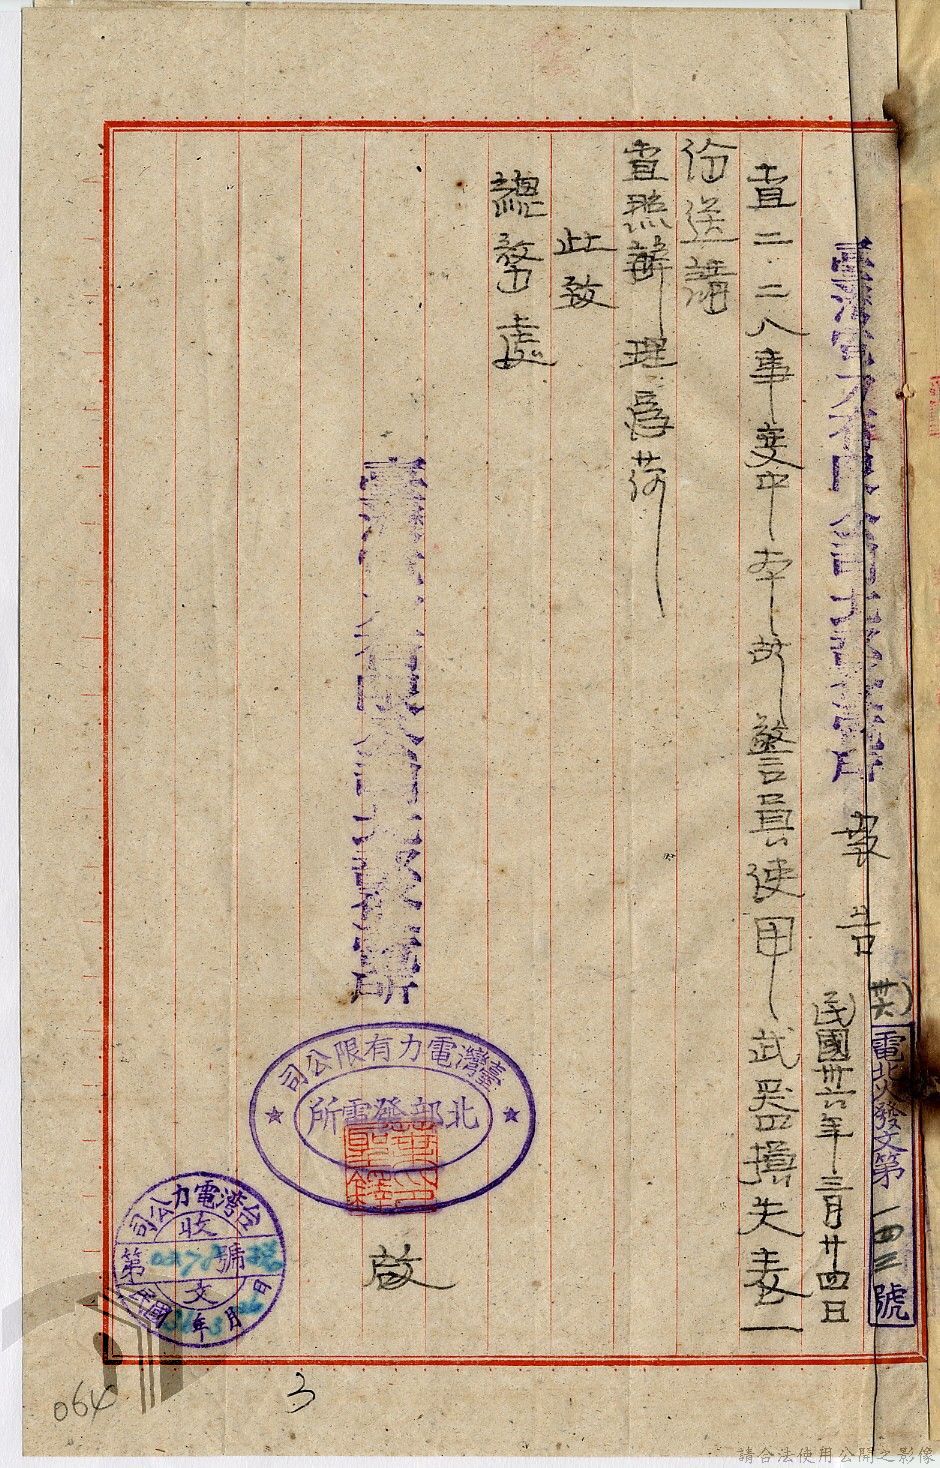 臺灣電力有限公司北部發電所 報告
(共)電北火發文第一四三號
民國卅六年三月廿四日
查二．二八事變中本所警員使用武器損失表一
份送請
查照辦理為荷
此致
總務處
臺灣電力有限公司北部發電所
臺灣電力有限公司
北部發電所
啟
台灣電力公司
收文
第 號
民國 年 月 日
064
3
請合法使用公開之影像